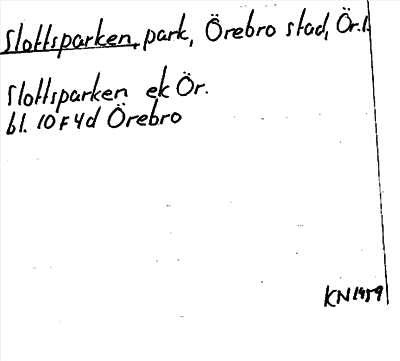 Slottsparken, park, Örebro stad, Ör.l.
Slottsparken ek Ör.
bl. 10F4d Örebro
KN1959